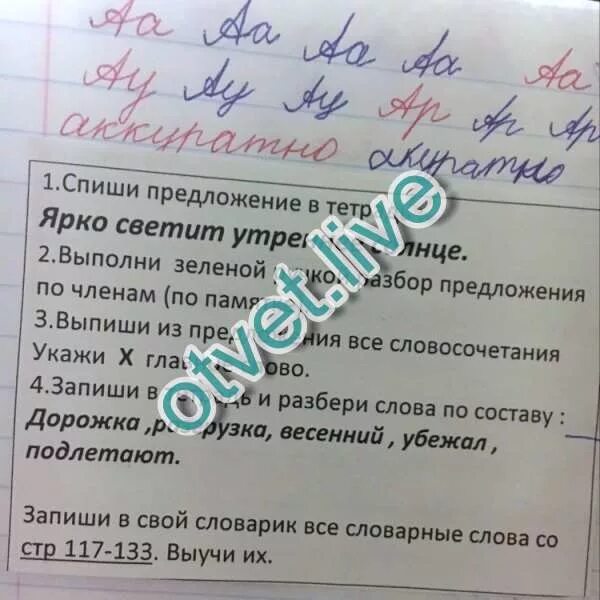 Аа Аа Аа Аа Аа
Ау Ау Ау Ар Ар Ар
аккуратно акуратно
1.Спиши предложение в тетр
Ярко светит утре лнце.
2.Выполни зеленой разбор предложения
по членам (по памя
3.Выпиши из пред ния все словосочетания
Укажи Х глав ово.
4.Запиши в дь и разбери слова по составу :
Дорожка ,р рузка, весенний , убежал ,
подлетают.
Запиши в свой словарик все словарные слова со
стр 117-133. Выучи их.
otvet.live